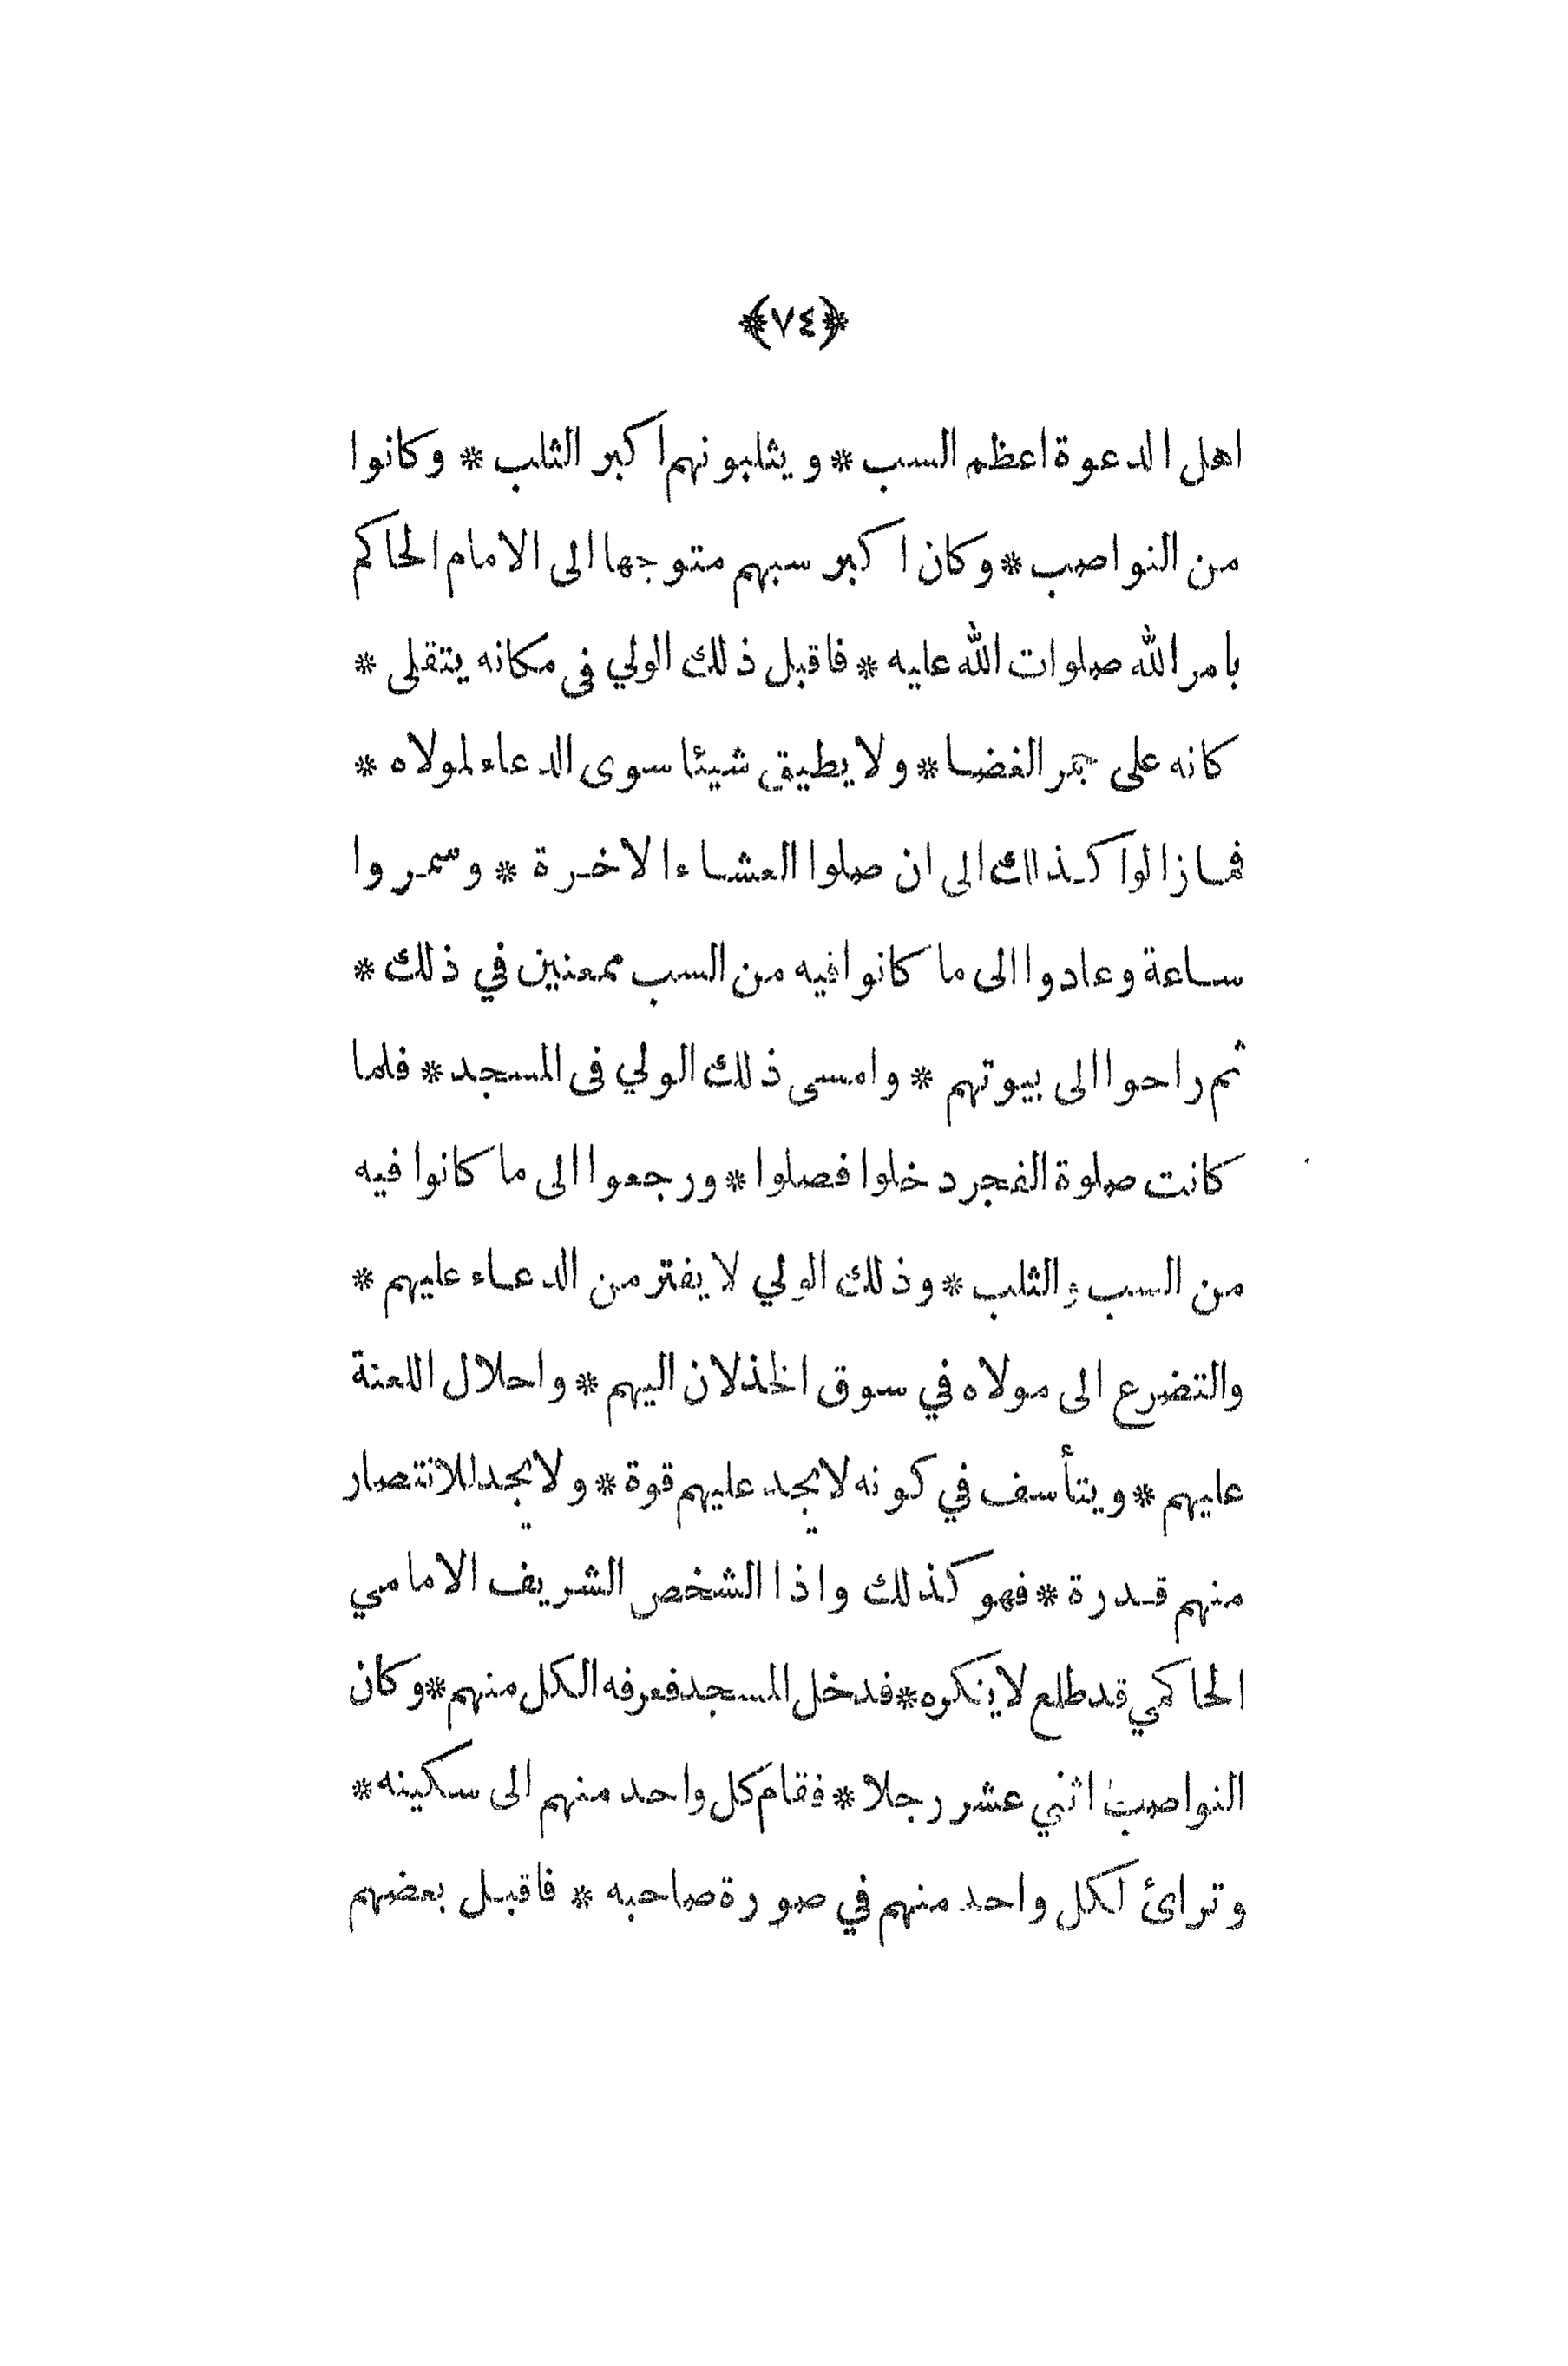 ﴿٧٤﴾
اهل الدعوة اعظم السب * ويثلبونهم اكبر الثلب * وكانوا
من النواصب * وكان اكبر سبهم متوجها الى الامام الحاكم
بامر الله صلوات الله عليه * فاقبل ذلك الولي فى مكانه يتقلى *
كانه على جمر الغضا * ولا يطيق شيئا سوى الدعاء لمولاه *
فمازالوا كذلك الى ان صلوا العشاء الاخرة * وسمروا
ساعة وعادوا الى ما كانوا فيه من السب ممعنين في ذلك *
ثم راحوا الى بيوتهم * وامسى ذلك الولي فى المسجد * فلما
كانت صلوة الفجر دخلوا فصلوا * ورجعوا الى ما كانوا فيه
من السب والثلب * وذلك الولي لا يفتر من الدعاء عليهم *
والتضرع الى مولاه في سوق الخذلان اليهم * واحلال اللعنة
عليهم * ويتأسف في كونه لا يجد عليهم قوة * ولا يجد للانتصار
منهم قدرة * فهو كذلك واذا الشخص الشريف الامامي
الحاكمي قد طلع لا ينكره * فدخل المسجد فعرفه الكل منهم * وكان
النواصب اثني عشر رجلا * فقام كل واحد منهم الى سكينه *
وترائ لكل واحد منهم في صورة صاحبه * فاقبل بعضهم